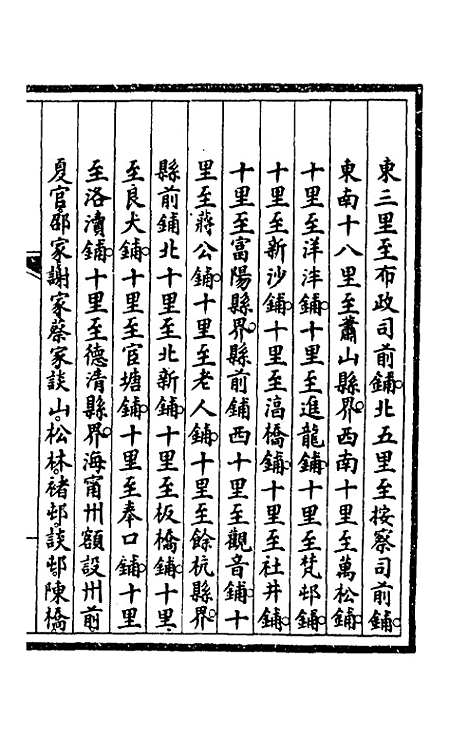 東三里至布政司前鋪北五里至按察司前鋪
東南十八里至蕭山縣界西南十里至萬松鋪
十里至洋泮鋪十里至進龍鋪十里至梵邨鋪
十里至新沙鋪十里至瀉橋鋪十里至社井鋪
十里至富陽縣界縣前鋪西十里至觀音鋪十
里至蔣公鋪十里至老人鋪十里至餘杭縣界
縣前鋪北十里至北新鋪十里至板橋鋪十里
至良犬鋪十里至官塘鋪十里至奉口鋪十里
至洛瀆鋪十里至德清縣界海甯州額設州前
夏官邵家謝家蔡家談山松林褚邨談邨陳橋